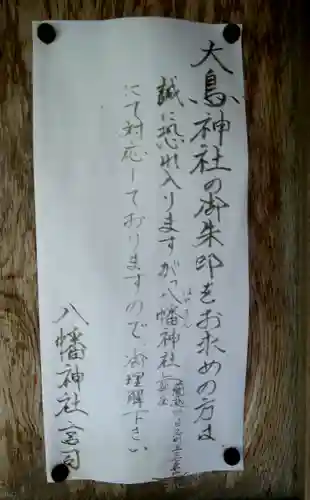 大鳥神社の御朱印をお求めの方は
誠に恐れ入りますが、八幡神社
にて対応しておりますので、御理解下さい
八幡神社 宮司